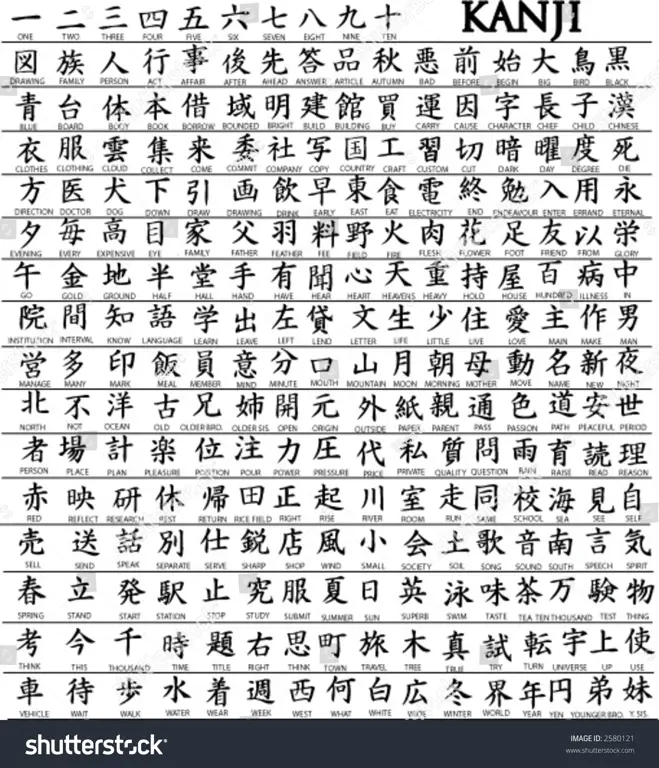 一 二 三 四 五 六 七 八 九 十 KANJI
ONE TWO THREE FOUR FIVE SIX SEVEN EIGHT NINE TEN
図 族 人 行 事 後 先 答 品 秋 悪 前 始 大 鳥 黒
DRAWING FAMILY PERSON ACT AFFAIR AFTER AHEAD ANSWER ARTICLE AUTUMN BAD BEFORE BEGIN BIG BIRD BLACK
青 台 体 本 借 域 明 建 館 買 運 因 字 長 子 漢
BLUE BOARD BODY BOOK BORROW BOUNDED BRIGHT BUILD BUILDING BUY CARRY CAUSE CHARACTER CHIEF CHILD CHINESE
衣 服 雲 集 来 委 社 写 国 工 習 切 暗 曜 度 死
CLOTHES CLOTHING CLOUD COLLECT COME COMMIT COMPANY COPY COUNTRY CRAFT CUSTOM CUT DARK DAY DEGREE DIE
方 医 犬 下 引 画 飲 早 東 食 電 終 勉 入 用 永
DIRECTION DOCTOR DOG DOWN DRAW DRAWING DRINK EARLY EAST EAT ELECTRICITY END ENDEAVOUR ENTER ERRAND ETERNAL
夕 毎 高 目 家 父 羽 料 野 火 肉 花 足 友 以 栄
EVENING EVERY EXPENSIVE EYE FAMILY FATHER FEATHER FEE FIELD FIRE FLESH FLOWER FOOT FRIEND FROM GLORY
午 金 地 半 堂 手 有 聞 心 天 重 持 屋 百 病 中
GO GOLD GROUND HALF HALL HAND HAVE HEAR HEART HEAVENS HEAVY HOLD HOUSE HUNDRED ILLNESS IN
院 間 知 語 学 出 左 貸 文 生 少 住 愛 主 作 男
INSTITUTION INTERVAL KNOW LANGUAGE LEARN LEAVE LEFT LEND LETTER LIFE LITTLE LIVE LOVE MAIN MAKE MAN
営 多 印 飯 員 意 分 口 山 月 朝 母 動 名 新 夜
MANAGE MANY MARK MEAL MEMBER MIND MINUTE MOUTH MOUNTAIN MOON MORNING MOTHER MOVE NAME NEW NIGHT
北 不 洋 古 兄 姉 開 元 外 紙 親 通 色 道 安 世
NORTH NOT OCEAN OLD OLDER BRO. OLDER SIS. OPEN ORIGIN OUTSIDE PAPER PARENT PASS PASSION PATH PEACEFUL PERIOD
者 場 計 楽 位 注 力 圧 代 私 質 問 雨 育 読 理
PERSON PLACE PLAN PLEASURE POSITION POUR POWER PRESSURE PRICE PRIVATE QUALITY QUESTION RAIN RAISE READ REASON
赤 映 研 休 帰 田 正 起 川 室 走 同 校 海 見 自
RED REFLECT RESEARCH REST RETURN RICE FIELD RIGHT RISE RIVER ROOM RUN SAME SCHOOL SEA SEE SELF
売 送 話 別 仕 鋭 店 風 小 会 土 歌 音 南 言 気
SELL SEND SPEAK SEPARATE SERVE SHARP SHOP WIND SMALL SOCIETY SOIL SONG SOUND SOUTH SPEECH SPIRIT
春 立 発 駅 止 究 服 夏 日 英 泳 味 茶 万 験 物
SPRING STAND START STATION STOP STUDY SUBMIT SUMMER SUN SUPERB SWIM TASTE TEA TEN THOUSAND TEST THING
考 今 千 時 題 右 思 町 旅 木 真 試 転 宇 上 使
THINK THIS THOUSAND TIME TITLE RIGHT THINK TOWN TRAVEL TREE TRUE TRY TURN UNIVERSE UP USE
車 待 歩 水 着 週 西 何 白 広 冬 界 年 円 弟 妹
VEHICLE WAIT WALK WATER WEAR WEEK WEST WHAT WHITE WIDE WINTER WORLD YEAR YEN YOUNGER BRO. Y. SIS.
shutterstock
IMAGE ID: 2580121
www.shutterstock.com